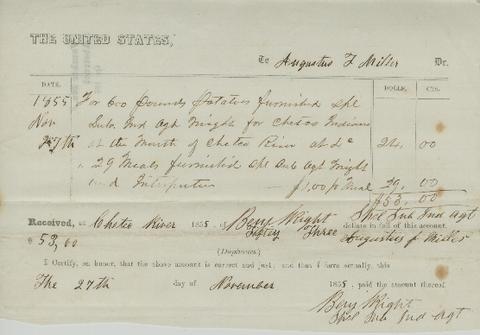 THE UNITED STATES,
To Augustus F Miller Dr.
DATE. DOLLS. CTS.
1855 For 600 Pounds Potatoes furnished Spl
Nov Sub. Ind Agt Wright for Chetco Indians
27th at the Mouth of Chetco River at 4c 24, 00
" 29 Meals furnished Spl Sub Agt Wright
and Interpreter — $1,00 p Meal 29, 00
$53,00
Received, at Chetco River 1855, of Benj Wright Spcl Sub Ind Agt
Fiftey Three dollars in full of this account.
$ 53,00 Augustus F Miller
(Duplicates)
I Certify, on honor, that the above account is correct and just; and that I have actually, this
The 27th day of November 1855, paid the amount thereof.
Benj Wright
Spcl Sub Ind Agt